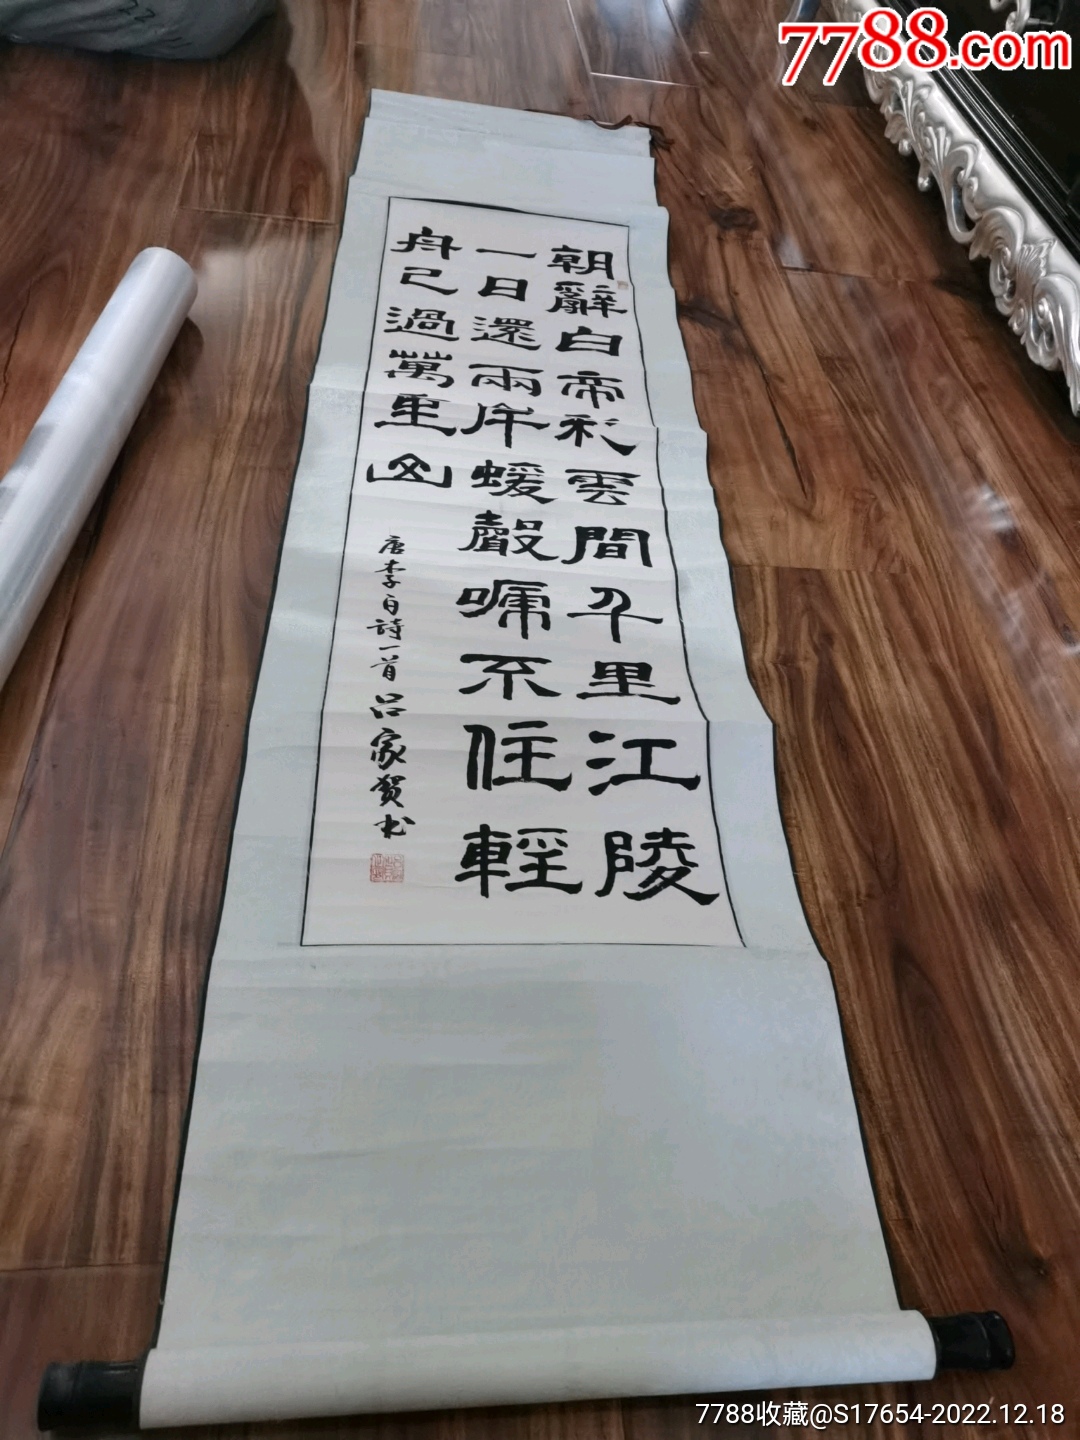 7788.com
朝辭白帝彩雲間千里江陵
一日還兩岸蝯聲嗁不住輕
舟已過萬重山
唐李白詩一首吕家贺书
7788收藏@S17654-2022.12.18